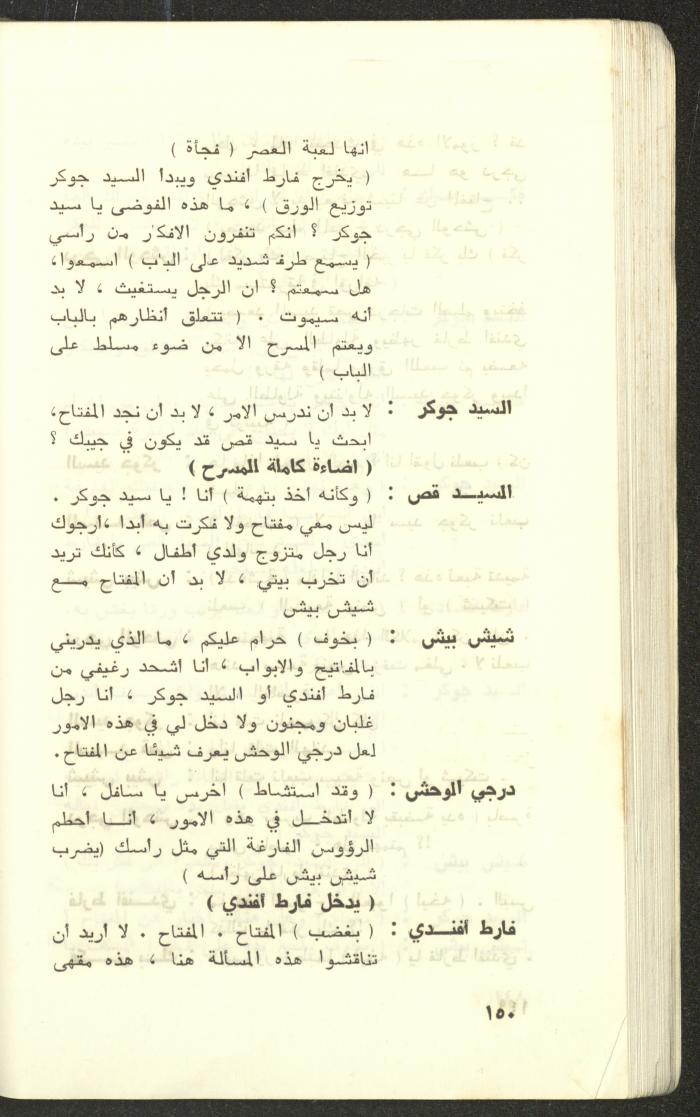 انها لعبة العصر ( فجأة )
( يخرج فارط أفندي ويبدأ السيد جوكر
توزيع الورق ) ، ما هذه الفوضى يا سيد
جوكر ؟ انكم تنفرون الافكار من رأسي
( يسمع طرف شديد على الباب ) اسمعوا،
هل سمعتم ؟ ان الرجل يستغيث ، لا بد
أنه سيموت . ( تتعلق أنظارهم بالباب
ويعتم المسرح الا من ضوء مسلط على
الباب )
السيد جوكر : لا بد أن ندرس الامر ، لا بد أن نجد المفتاح،
ابحث يا سيد قص قد يكون في جيبك ؟
( اضاءة كاملة للمسرح )
السيــد قص : ( وكأنه أخذ بتهمة ) أنا ! يا سيد جوكر .
ليس معي مفتاح ولا فكرت به أبدا ،أرجوك
أنا رجل متزوج ولدي أطفال ، كأنك تريد
أن تخرب بيتي ، لا بد أن المفتاح مــع
شيش بيش
شيش بيش : ( بخوف ) حرام عليكم ، ما الذي يدريني
بالمفاتيح والابواب ، أنا أشحد رغيفي من
فارط أفندي أو السيد جوكر ، أنا رجل
غلبان ومجنون ولا دخل لي في هذه الامور
لعل درجي الوحش يعرف شيئا عن المفتاح.
درجي الوحش : ( وقد استشاط ) اخرس يا سافل ، أنا
لا أتدخــل في هذه الامور ، أنــا أحطم
الرؤوس الفارغة التي مثل رأسك (يضرب
شيش بيش على رأسه )
( يدخل فارط أفندي )
فارط أفنــدي : ( بغضب ) المفتاح . المفتاح . لا أريد أن
تناقشوا هذه المسألة هنا ، هذه مقهى
١٥٠